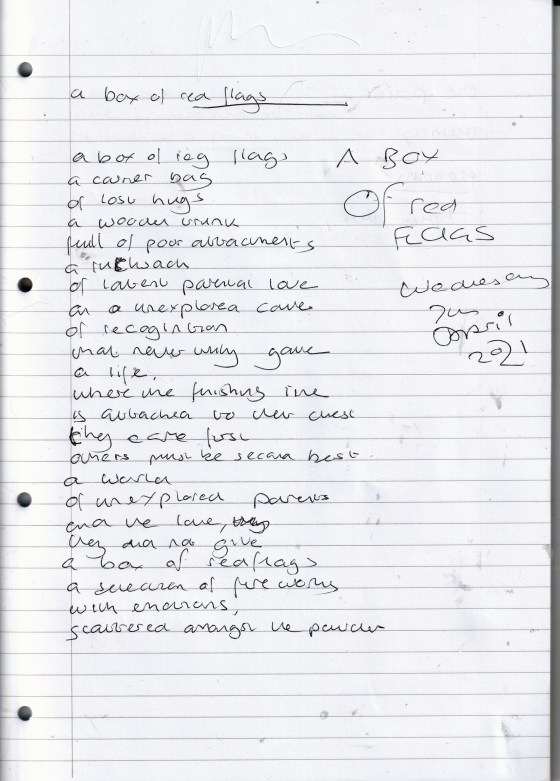 a box of red flags
a box of reg flags
a carrier bag
of lost hugs
a wooden trunk
full of poor attachments
a ruckwack
of latent parental love
an a unexplored cave
of recognition
that never truly gave
a life,
where the finishing line
is attached to their chest
they came first
others must be second best
a world
of unexplored parents
and the love, they
they did not give
a box of redflags
a selection of fireworks
with emotions,
scattered amongst the powder
A BOX
Of red
FLAGS
Wednesday
7th
April
2021